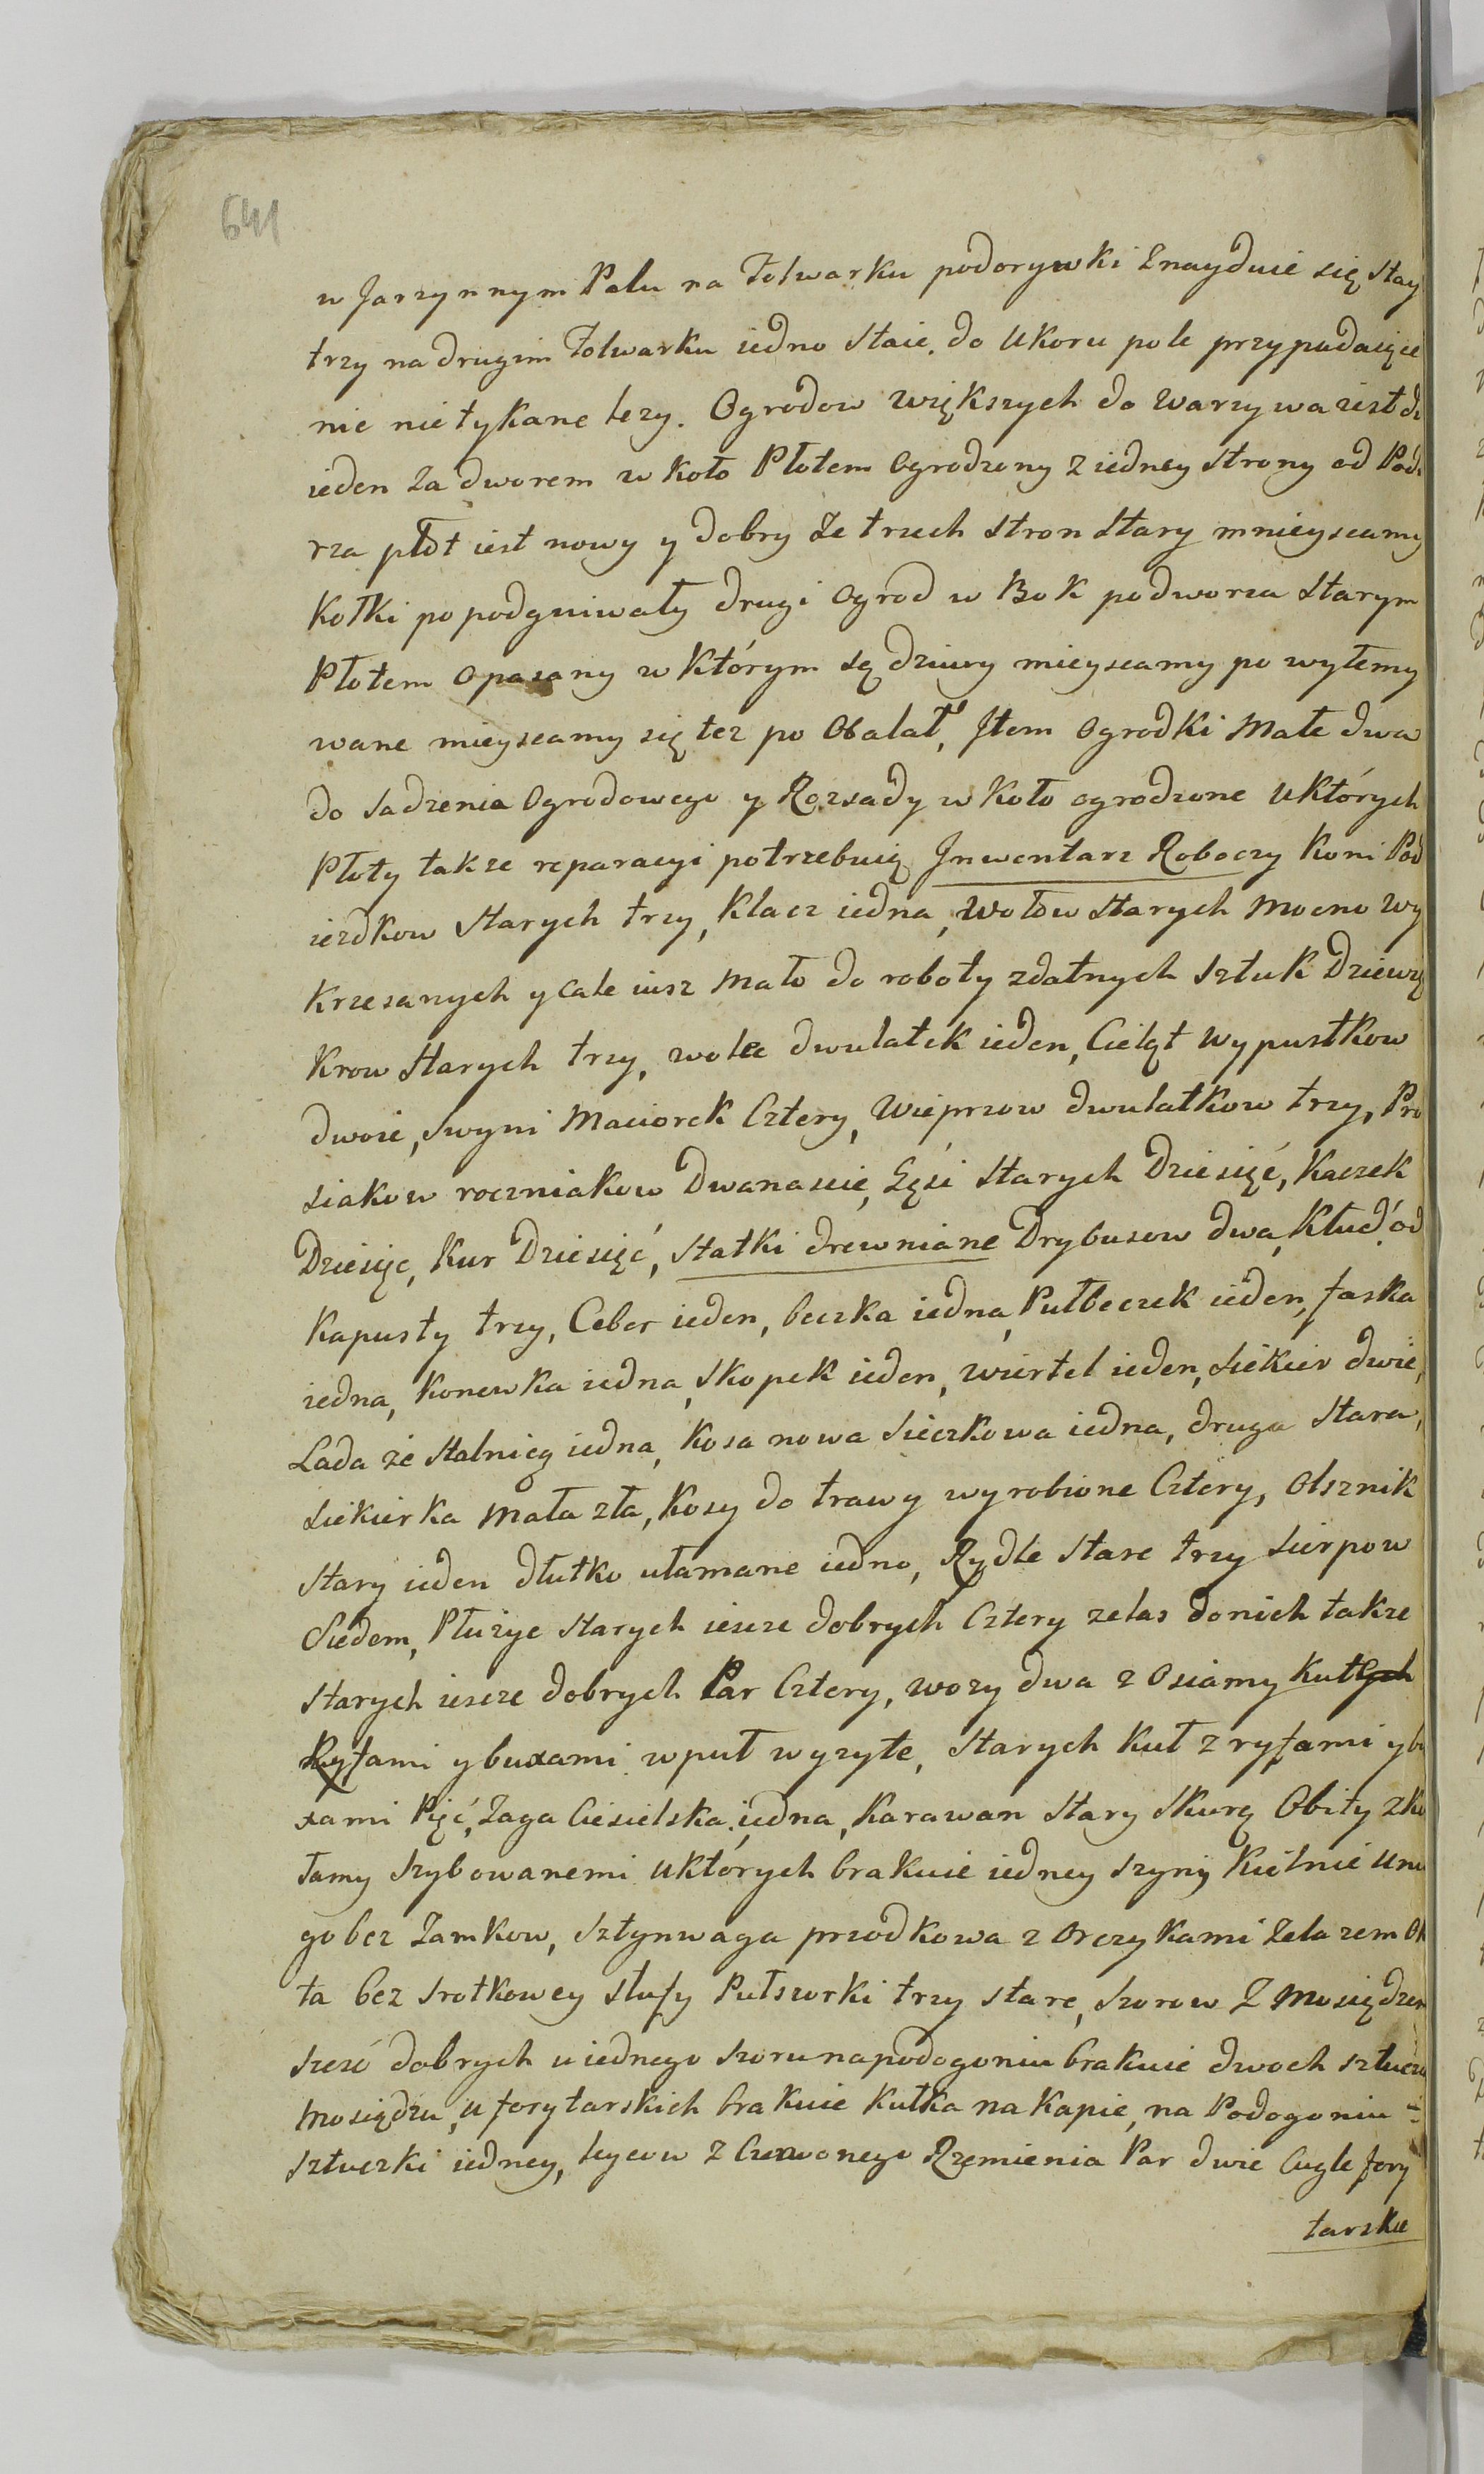 641
w Jarzynnym Polu na Folwarku podorywki Znayduie się Stay
trzy na drugim Folwarku iedno Staie. do Ukoru pole przypadaiące
nie nietykane lezy. Ogrodow większych do Warzywa iest
ieden Za dworem w koło Płotem Ogrodzony z iedney Strony od Pod
rza płot iest nowy y dobry Ze trzech Stron Stary mnieyscamy
Kołki popodgniwały drugi Ogrod w Bok podworza Starym
Płotem Opasany w którym są dziury mieyscamy po wyłemy
wane mieyscamy się tez po Obalał, Jtem Ogrodki Małe dwa
do Sadzenia Ogrodowego y Rozsady w koło ogrodzone u których
Płoty takze reparacyi potrzebuią Jnwentarz Roboczy Koni Pod
iezdkow Starych trzy, Klacz iedna, Wołow Starych Mocno Wy
Krzesanych y Cale iusz Mało do roboty zdatnych Sztuk Dziewię
Krow Starych trzy, wolec dwulatek ieden, Cieląt Wypustkow
dwoie, Swyni Maciorek Cztery, Wieprzow dwulatkow trzy, Pro
siakow roczniakow Dwanascie, Gęsi Starych Dziesięć, Kaczek
Dziesięc, Kur Dziesięć, Statki drewniane Drybusow dwa, Kłud od
Kapusty trzy, Ceber ieden, beczka iedna, Pułbeczek ieden, faska
iedna, Konewka iedna, Skopek ieden, wiertel ieden, Siekier dwie,
Lada ze Stalnicą iedna, Kosa nowa Sieczkowa iedna, druga Stara,
Siekierka Mała zła, Kosy do trawy wyrobione Cztery, Olsznik
Stary ieden dłutko ułamane iedno, Rydle Stare trzy Sierpow
Siedem, Płuzyc Starych iescze dobrych Cztery zelas do nich takze
Starych iescze dobrych Par Cztery, wozy dwa z Osiamy Kutych
Ryfami y buxami wpuł wyzyte, Starych Kuł z ryfami y bu
xami Pięć, Zaga Ciesielska iedna, Karawan Stary Skurą Obity z ku
łamy Szybowanemi u których brakuie iedney Szyny
go bez Zamkow, Sztynwaga przodkowa z Orczykami Zelazem Ok
ta bez Srotkowey Stufy Pułszorki trzy stare, Szorow Z Mosiędzem
Szesć dobrych u iednego Szoru na podogoniu brakuie dwoch sztucz
Mosiędzu, u forytarskich brakuie Kułka na Kapie, na Podogoniu
Sztuczki iedney, Leycow Z Czerwonego Rzemienia Par dwie Cugle fory
tarskie